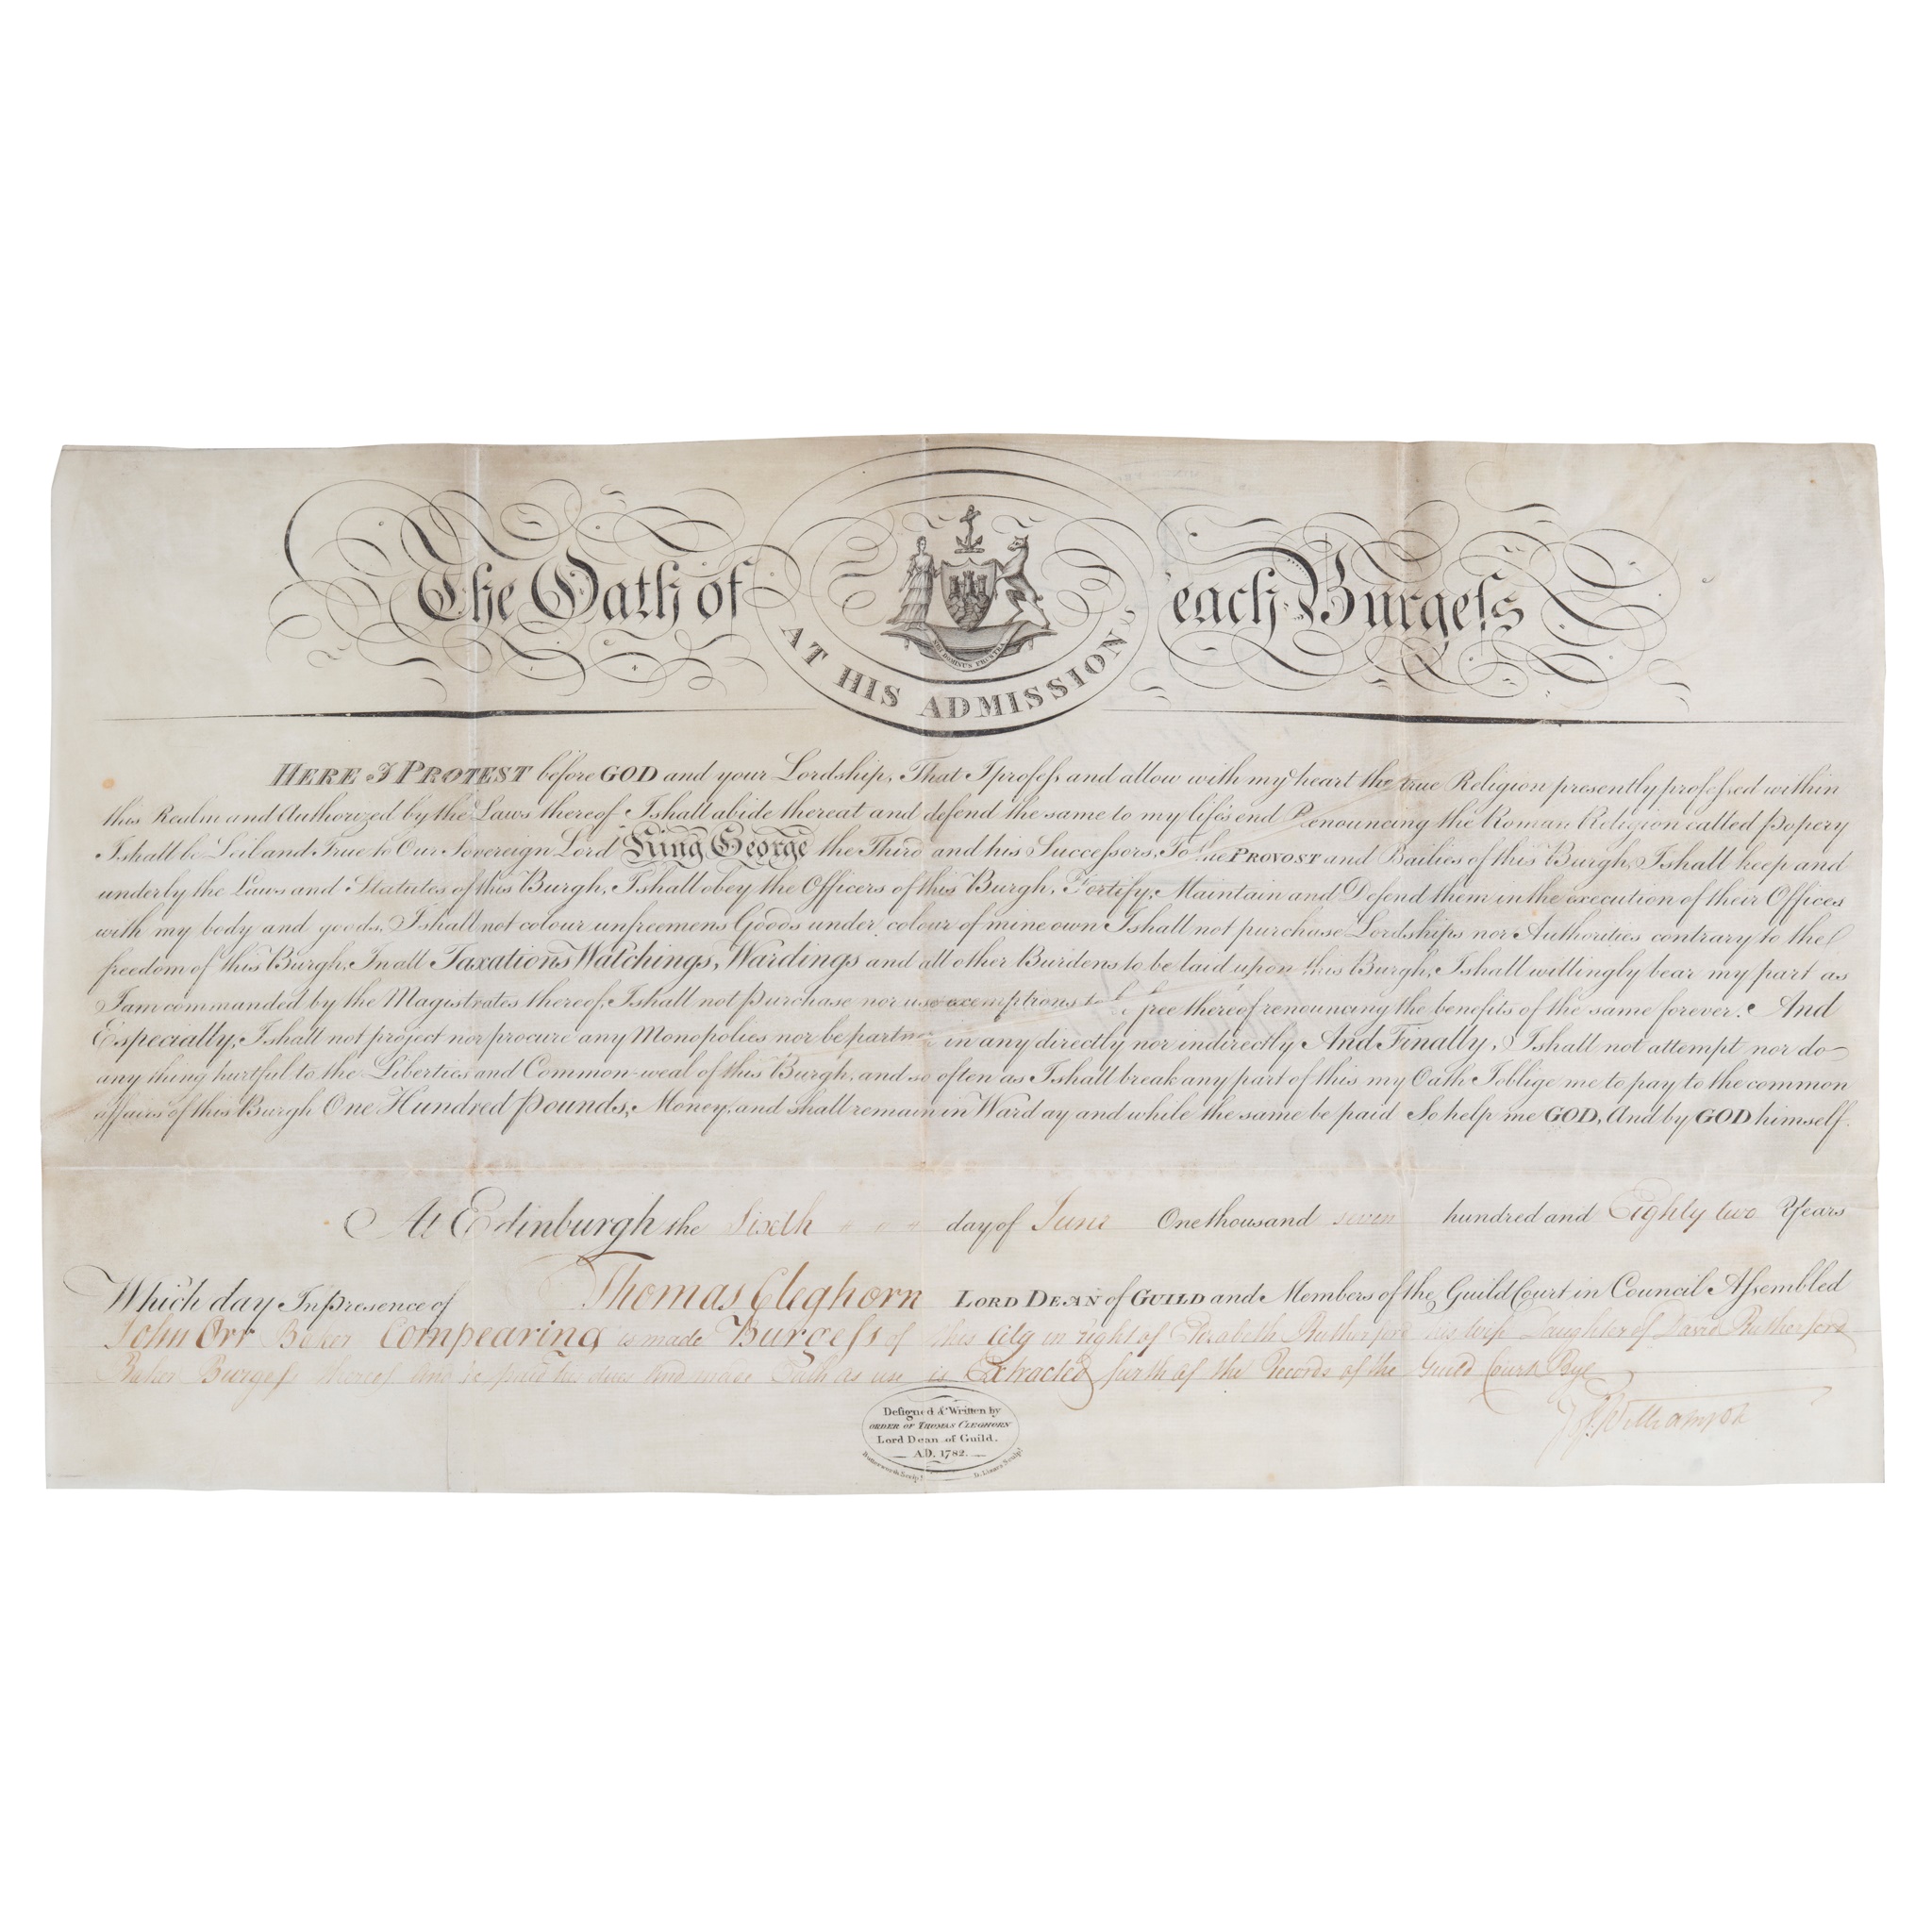 The Oath of each Burgeſs
NISI DOMINUS FRUSTRA
AT HIS ADMISSION
HERE I PROTEST before GOD and your Lordship, That I profeſs and allow with my heart the true Religion presently profeſsed within
this Realm and Authorized by the Laws thereof I shall abide thereat and defend the same to my life's end Renouncing the Roman Religion called Popery
I shall be Leil and True to Our Sovereign Lord King George the Third and his Succeſsors, To the PROVOST and Bailies of this Burgh, I shall keep and
underly the Laws and Statutes of this Burgh, I shall obey the Officers of this Burgh, Fortify, Maintain and Defend them in the execution of their Offices
with my body and goods, I shall not colour unfreemens Goods under colour of mine own I shall not purchase Lordships nor Authorities contrary to the
freedom of this Burgh, In all Taxations Watchings, Wardings and all other Burdens to be laid upon this Burgh, I shall willingly bear my part as
I am commanded by the Magistrates thereof, I shall not purchase nor use exemptions to be free thereof renouncing the benefits of the same forever. And
Especially, I shall not project nor procure any Monopolies nor be partner in any directly nor indirectly And Finally, I shall not attempt nor do
any thing hurtful to the Liberties and Common-weal of this Burgh, and so often as I shall break any part of this my Oath I oblige me to pay to the common
affairs of this Burgh One Hundred Pounds, Money, and shall remain in Ward ay and while the same be paid So help me GOD, And by GOD himself.
At Edinburgh the Sixth day of June One thousand seven hundred and Eighty two Years
Which day In presence of Thomas Cleghorn LORD DEAN of GUILD and Members of the Guild Court in Council Aſsembled
John Orr Baker Compearing is made Burgeſs of this City in right of Elizabeth Rutherford his wife Daughter of David Rutherford
Baker Burgeſs thereof And he paid his dues And made Oath as use is Extracted furth of the Records of the Guild Court By
J. Williamson
Deſigned & Written by
ORDER OF THOMAS CLEGHORN
Lord Dean of Guild.
A.D. 1782.
Butterworth Sculpt. D. Lizars Sculpt.